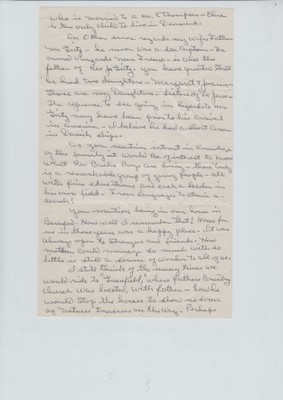 who is married to a Mr. E Thompson - Elsie
is the only child to live in Denmark.
Other error regards my Wife's Father
Mr. - he never was a Sea Captain - He
owned Vineyards near Fresno - is also the
father of You have quoted that
he had two daughters - Margaret & Joann -
Those are my Daughters -
The reference to sea going in regards to Mr.
may have been prior to his arrival
in America - I believe he had a short career
in Danish ships.
As you mention interest in knowledge
of the family it would be of interest to know
what the Boys are doing - Those Lads
is a remarkable group of young people - all
with fine educations and each a leader in
his own field - From Language to
You mention being in our home in
Now well I remember that! Home for
us in those years was a happy place - It was
always open to Strangers and friends. How
mother could manage so much with so
little is still a source of wonder to all of us.
I still think of the many times we
would ride to where Fathers Country
Church was located, with Father - how he
would stop the horses to show us some
of Natures treasures on the way. Perhaps